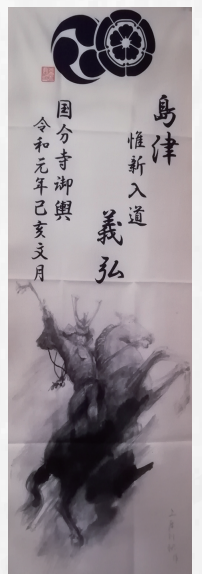 島津
惟新入道
義弘
国分寺御輿
令和元年己亥文月